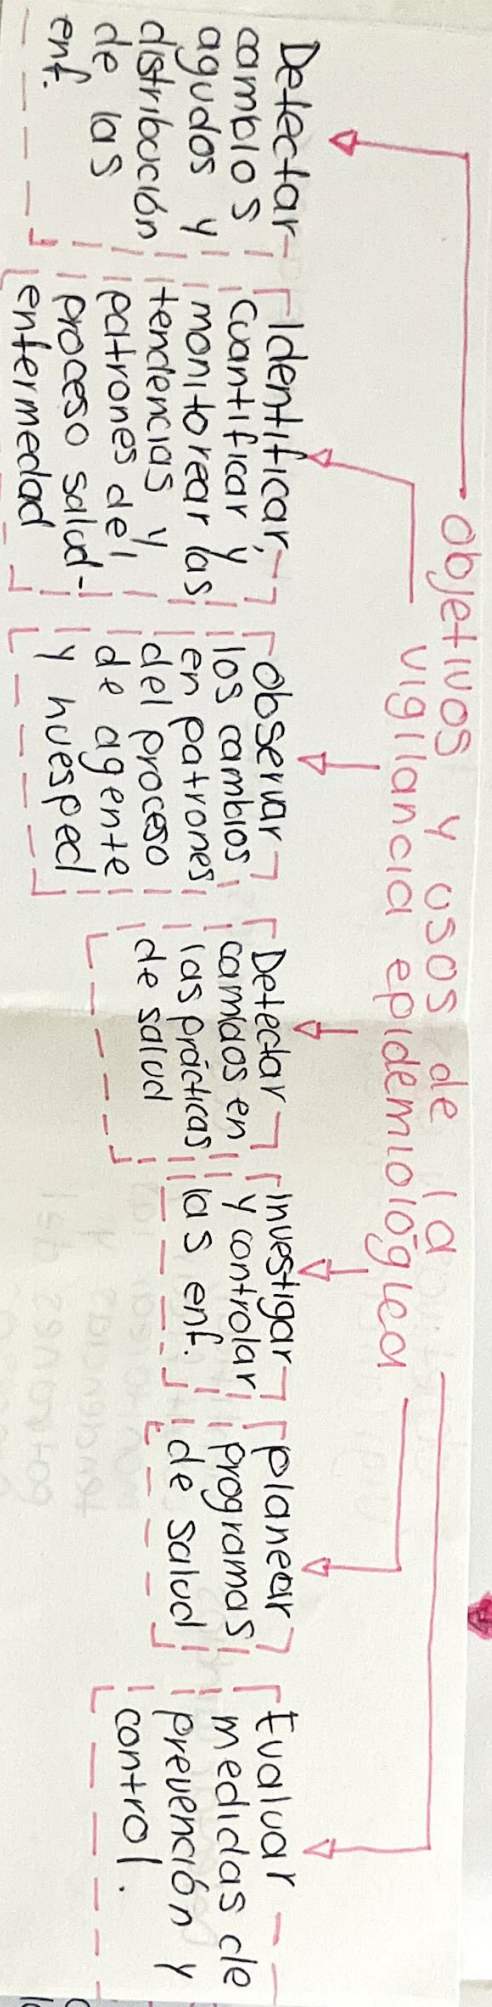 Objetivos y usos de la
vigilancia epidemiológica
Detectar
cambios
agudos y
distribución
de las
enf.
Identificar,
cuantificar y
monitorear las
tendencias y
patrones del
proceso salud-
enfermedad
Observar
los cambios
en patrones
del proceso
de agente
y huesped
Detectar
cambios en
las prácticas
de salud
Investigar
y controlar
las enf.
planear
programas
de salud
Evaluar
medidas de
prevención y
control.